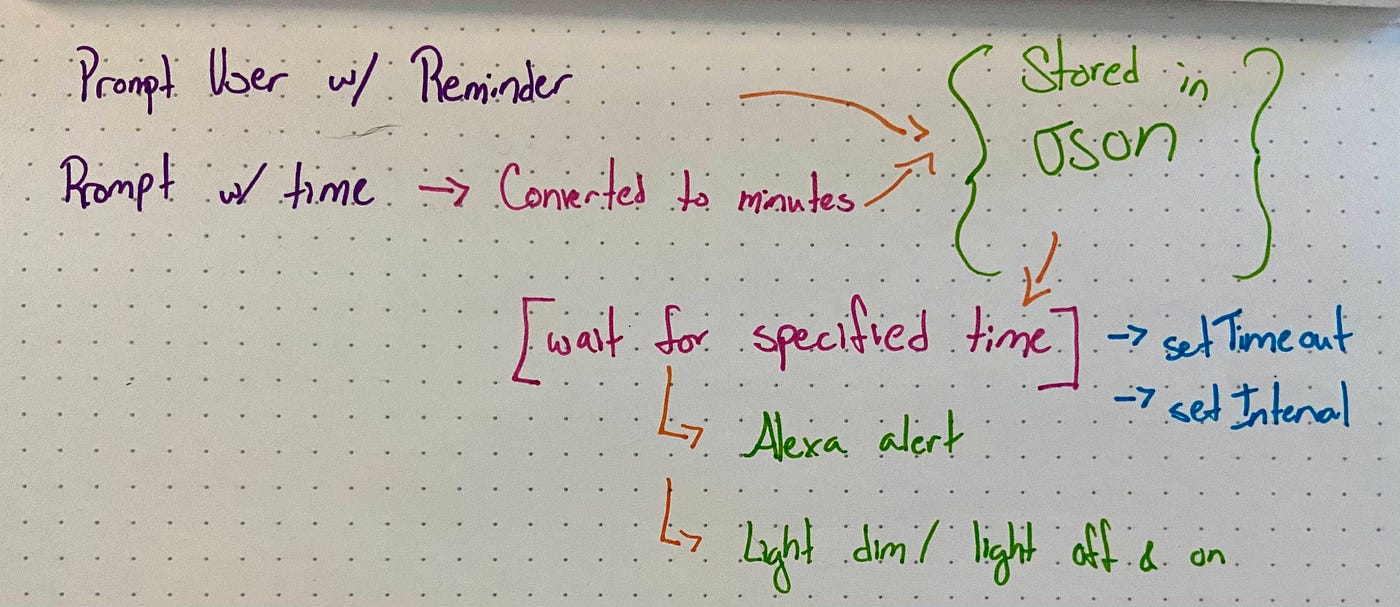 Prompt User w/ Reminder
{ Stored in
JSON }
Prompt w/ time → Converted to minutes
[wait for specified time] → setTimeout
→ setInterval
↳ Alexa alert
↳ Light dim / light off & on